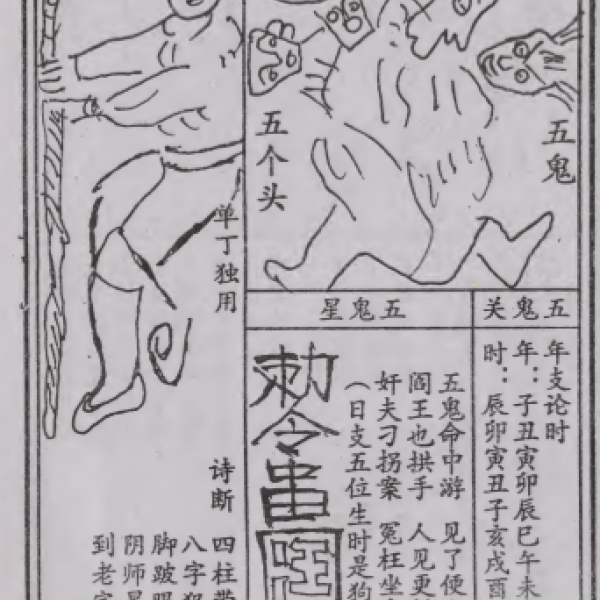 五鬼
五个头
五鬼关
年支论时
年：子丑寅卯辰巳午未
时：辰卯寅丑子亥戌酉
五鬼星
五鬼命中游 见了便
阎王也拱手 人见更
奸夫刁拐案 冤枉坐
（日支五位生时是狗
勅令
单丁独用
诗断
四柱
八字犯
脚跛眼
阴师
到老